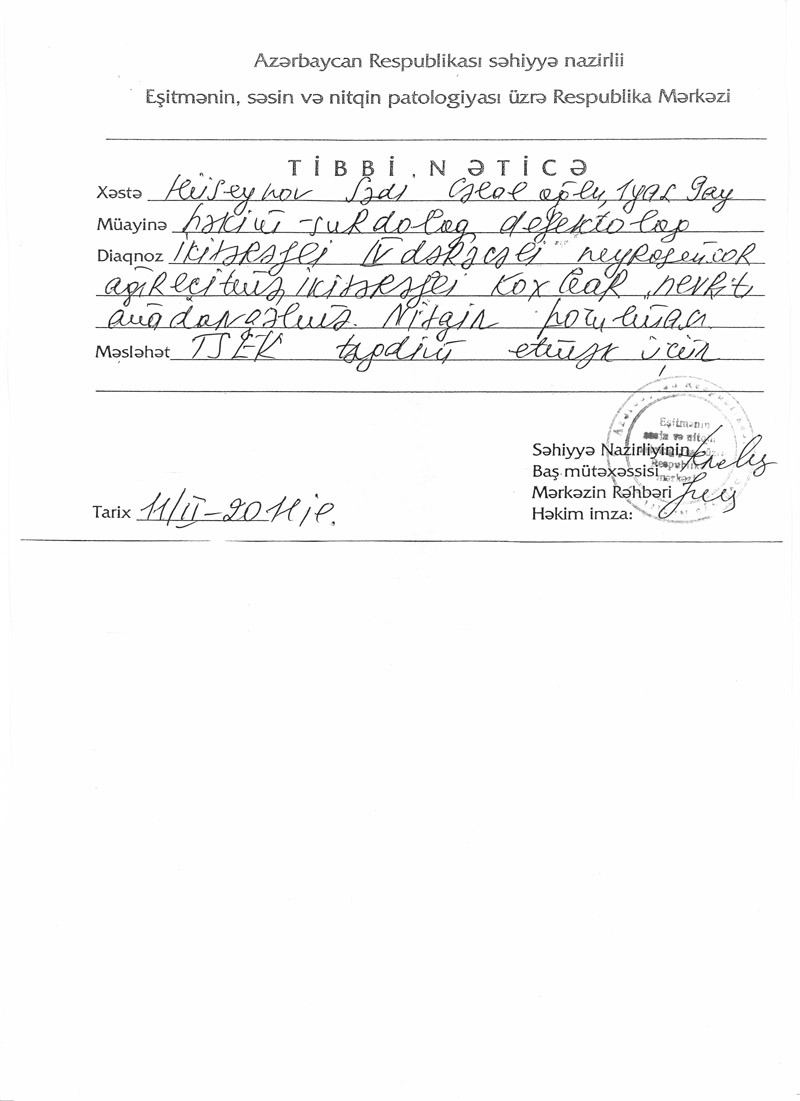 Azərbaycan Respublikası səhiyyə nazirlii
Eşitmənin, səsin və nitqin patologiyası üzrə Respublika Mərkəzi
TİBBİ NƏTİCƏ
Xəstə Hüseynov Sədi Cəlal oğlu, 1yaş 9ay
Müayinə həkim-surdoloq defektoloq
Diaqnoz İkitərəfli IV dərəcəli neyrosensor
ağıreşitmə, ikitərəfli koxlear nevrit,
anadangəlmə. Nitqin pozulması
Məsləhət TSEK təqdim etmək üçün
Eşitmənin
səsin və nitqin
Respublika
mərkəzi
Səhiyyə Nazirliyinin
Baş mütəxəssisi
Mərkəzin Rəhbəri
Tarix 11/II-2011 il.
Həkim imza: